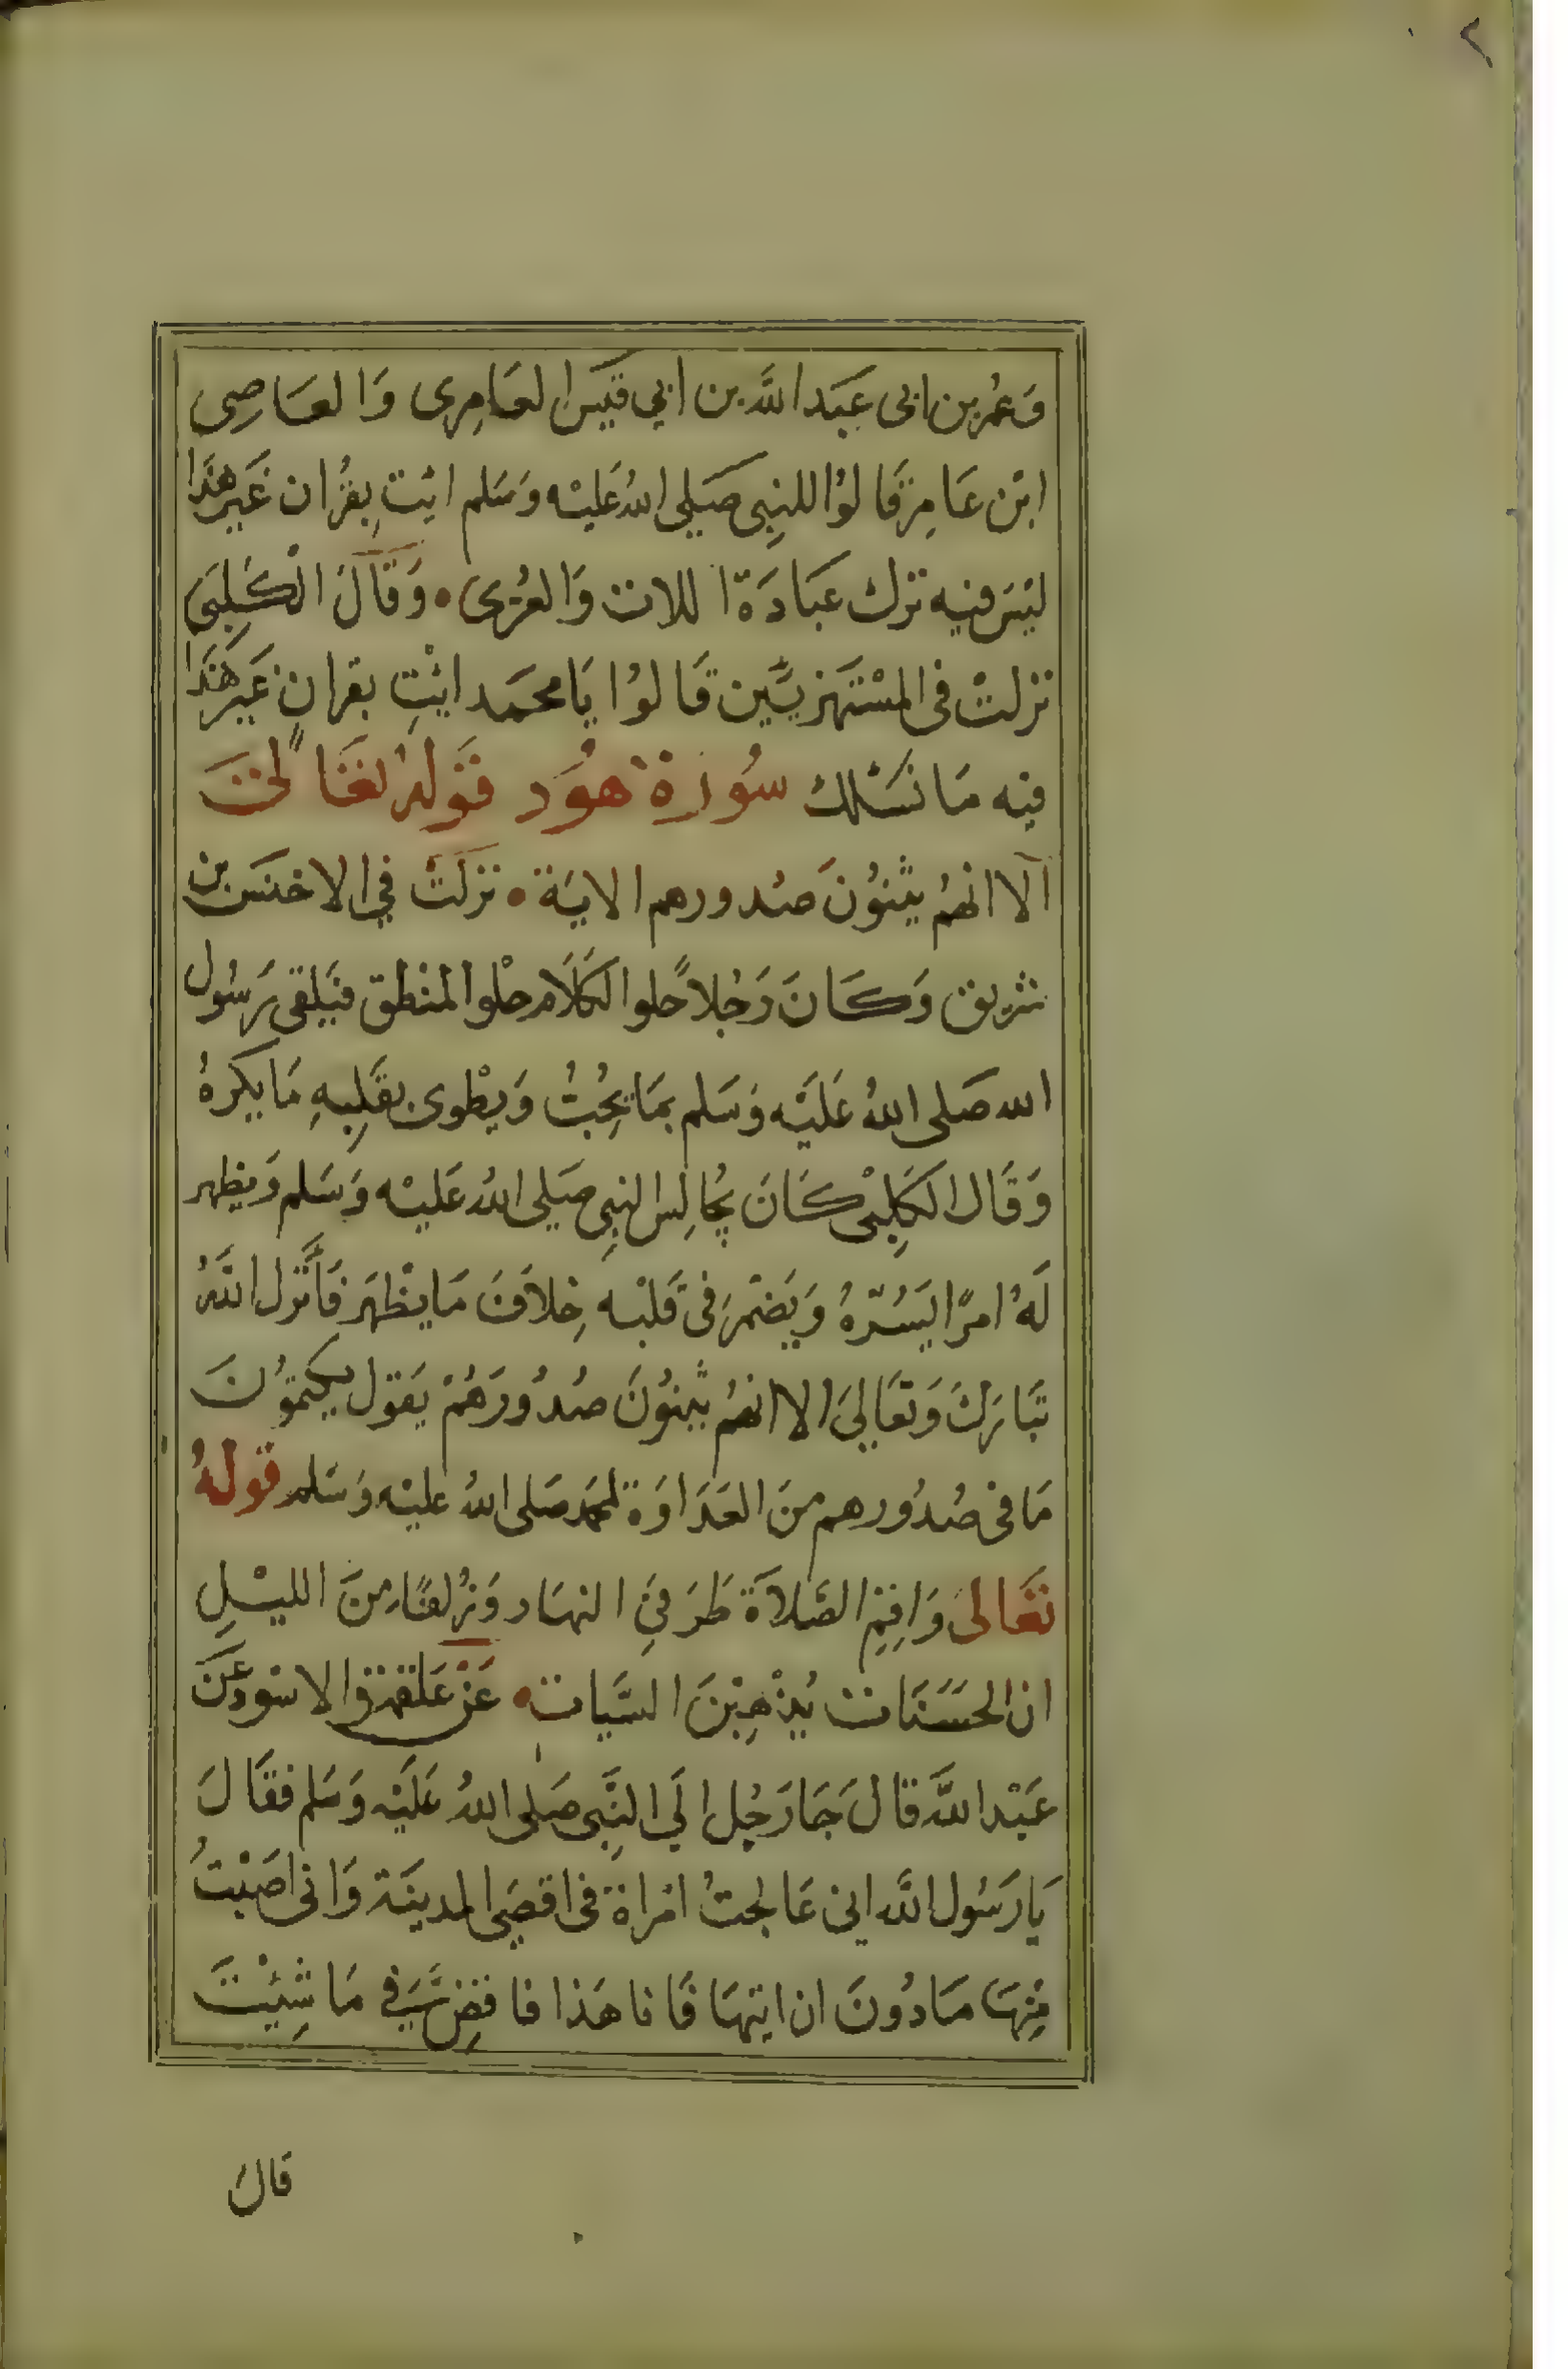 ٢
وَعُمَر بن ابى عَبَد اللَّه بن ابي قيَس العَامِرى وَالعَاصِى
ابْن عَامِر قَالوُا للنِبِى صَلى اللهُ عَليْه وَسَلم ائت بِقُران غَير هَذا
ليَس فيه ترك عَبَادَة اللات وَالعُزى وَقَالَ الْكَلِبَى
نزلتْ فى المسْتَهزييَّن قَالوُا يَا محمَد ائْتِ بقرانٍ غَير هَذا
فيه مَا نسَئلك سُورة هوُد قوَله تعَالىَ
آلا انهُم يثنوُنَ صُدورهم الايَة نزلَتْ في الاخنسَ بن
شريق وَكَانَ رَجُلاً حلو الكَلاَم حلْو المنْطق فيَلقى رَسُول
الله صَلى اللهُ عَليَه وَسَلم بمَا يحُبُ وَيطْوى بقَلِبهِ مَا يكرهُ
وَقَال الكَلِبْى كَانَ يُجالِس النبِي صَلى اللهُ عَليْه وَسَلم وَيظهر
لَهُ امرًا يَسُرّهُ وَيَضْمرَ فى قَلبْه خِلافَ مَا يظْهَر فَأَنْزل اللَّهُ
تَبَارَكَ وَتَعَالىَ الا انهُم يثْنوُنَ صُدُورَهُمْ يَقول يكتموُنَ
مَا فى صُدُورهم منَ العَدَاوَة لمحمَد صَلى اللهُ عليْه وَسَلم قولهُ
تعَالىَ وَاقِمِ الصَّلاَةَ طَرَفيَ النهَار وَزُلفًا مِنَ الليْلِ
ان الحَسَنَات يُذْهِبْنَ السَّيات عَنْ عَلقمَة وَالاسْود عَنَ
عَبْد اللَّه قالَ جَا رَجُل الَي النَّبِى صَلى اللهُ عَلَيْه وَسَلم فقَالَ
يَا رَسُول اللَّه انى عَالجتُ امْراة فى اقصَي المدينَة وَانى اصَبْتُ
مِنهَا مَا دُونَ ان اتيهَا فَانا هَذا فاقضِ فِيَّ مَا شِيْتَ
قالَ